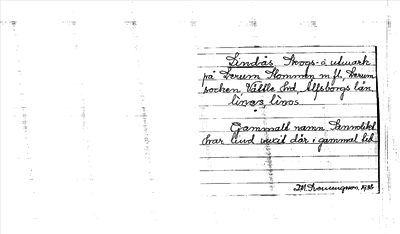 Lindås, Skogs- å utmark
på Lerum Stommen m fl, Lerum
socken Vättle hd, Älfsborgs län
línas, línos
Gammalt namn Sannolikt
har lind vuxit där i gammal tid
1926